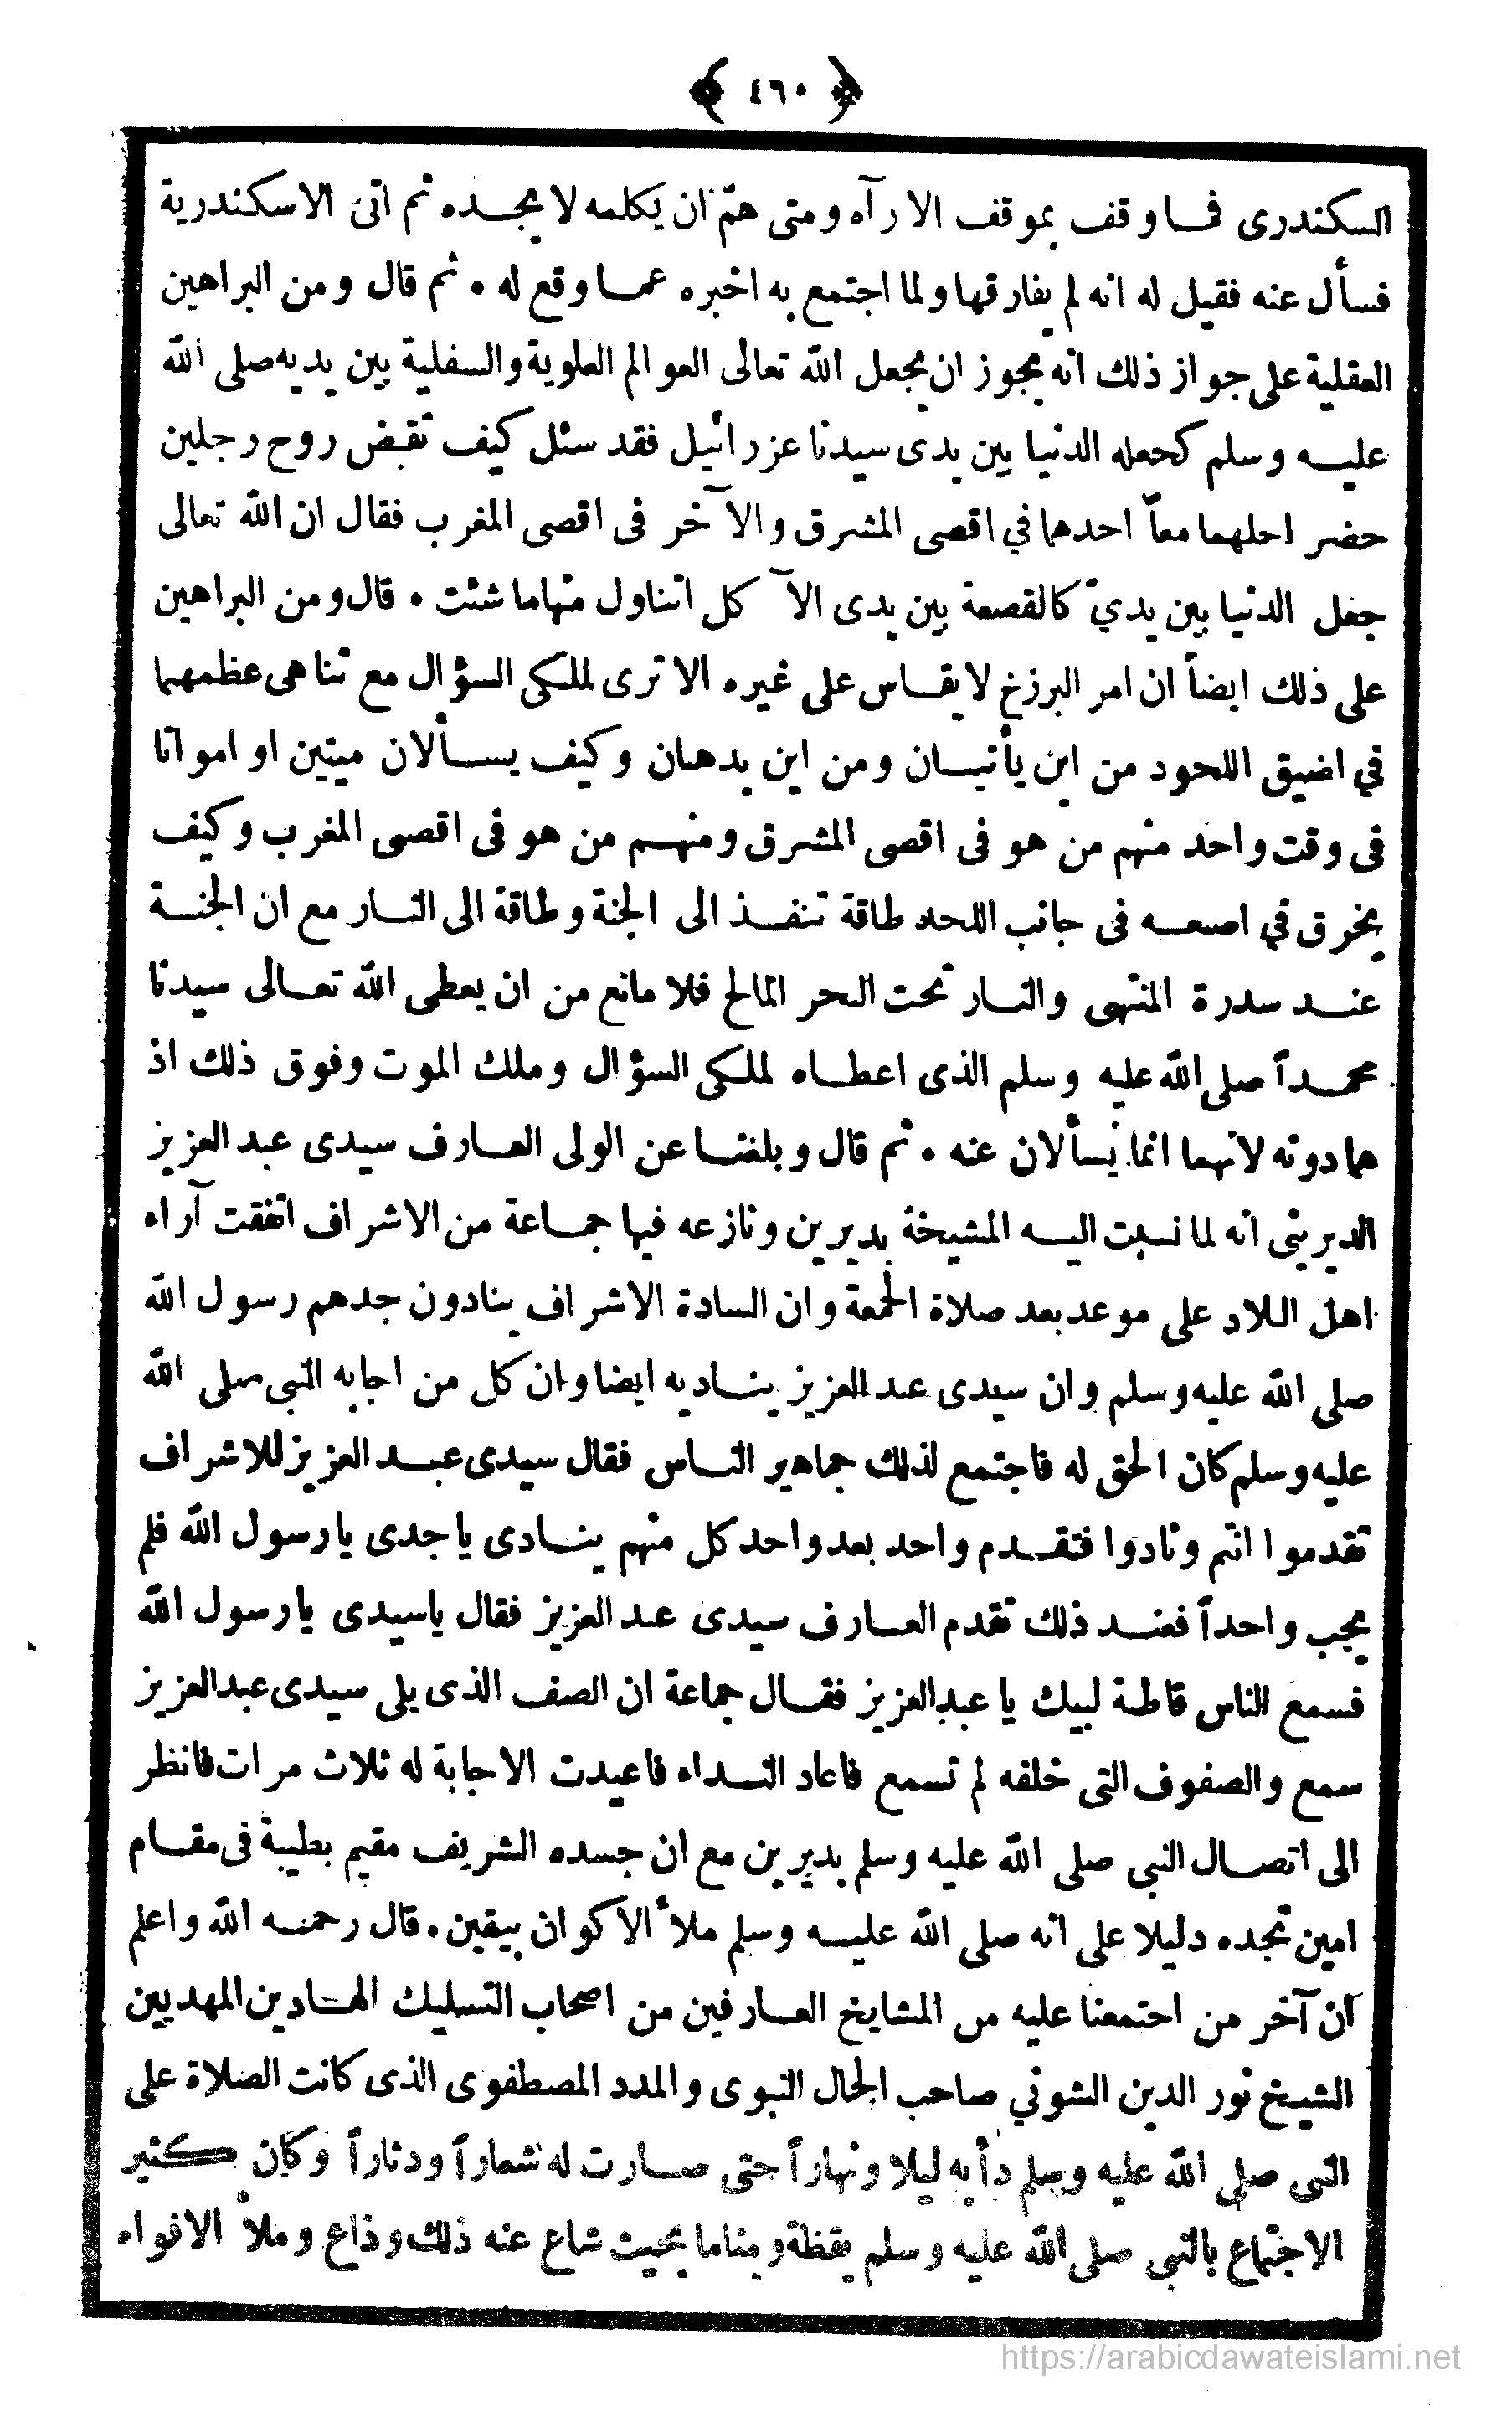 ﴿ ٤٦٠ ﴾
السكندرى فما وقف بموقف الا رآه ومتى همّ ان يكلمه لا يجده ثم اتى الاسكندرية
فسأل عنه فقيل له انه لم يفارقها ولما اجتمع به اخبره عما وقع له • ثم قال ومن البراهين
العقلية على جواز ذلك انه يجوز ان يجعل الله تعالى العوالم العلوية والسفلية بين يديه صلى الله
عليه وسلم كجعله الدنيا بين يدى سيدنا عزرائيل فقد سئل كيف تقبض روح رجلين
حضر اجلهما معاً احدهما في اقصى المشرق والآخر فى اقصى المغرب فقال ان الله تعالى
جعل الدنيا بين يديّ كالقصعة بين يدى الآكل اتناول منها ما شئت • قال ومن البراهين
على ذلك ايضاً ان امر البرزخ لا يقاس على غيره الا ترى لملكى السؤال مع تناهى عظمهما
في اضيق اللحود من اين يأتيان ومن اين يذهبان وكيف يسألان ميتين او امواتا
فى وقت واحد منهم من هو فى اقصى المشرق ومنهم من هو فى اقصى المغرب وكيف
يخرق في اصبعه فى جانب اللحد طاقة تنفذ الى الجنة وطاقة الى النار مع ان الجنة
عند سدرة المنتهى والنار تحت البحر المالح فلا مانع من ان يعطى الله تعالى سيدنا
محمداً صلى الله عليه وسلم الذى اعطاه لملكى السؤال وملك الموت وفوق ذلك اذ
هما دونه لانهما انما يسألان عنه • ثم قال وبلغنا عن الولى العارف سيدى عبد العزيز
الديرينى انه لما نسبت اليه المشيخة بديرين ونازعه فيها جماعة من الاشراف اتفقت آراء
اهل البلاد على موعد بعد صلاة الجمعة وان السادة الاشراف ينادون جدهم رسول الله
صلى الله عليه وسلم وان سيدى عبد العزيز يناديه ايضا وان كل من اجابه النبى صلى الله
عليه وسلم كان الحق له فاجتمع لذلك جماهير الناس فقال سيدى عبد العزيز للاشراف
تقدموا انتم ونادوا فتقدم واحد بعد واحد كل منهم ينادى يا جدى يا رسول الله فلم
يجب واحداً فعند ذلك تقدم العارف سيدى عبد العزيز فقال يا سيدى يا رسول الله
فسمع الناس قاطبة لبيك يا عبد العزيز فقال جماعة ان الصف الذى يلى سيدى عبد العزيز
سمع والصفوف التى خلفه لم تسمع فاعاد النداء فاعيدت الاجابة له ثلاث مرات فانظر
الى اتصال النبى صلى الله عليه وسلم بديرين مع ان جسده الشريف مقيم بطيبة فى مقام
امين تجده دليلا على انه صلى الله عليه وسلم ملأ الاكوان بيقين • قال رحمه الله واعلم
ان آخر من اجتمعنا عليه من المشايخ العارفين من اصحاب التسليك الهادين المهديين
الشيخ نور الدين الشوني صاحب الحال النبوى والمدد المصطفوى الذى كانت الصلاة على
النبى صلى الله عليه وسلم دأبه ليلا ونهاراً حتى صارت له شعاراً ودثاراً وكان كثير
الاجتماع بالنبى صلى الله عليه وسلم يقظة ومناما بحيث شاع عنه ذلك وذاع وملأ الافواه
https://arabicdawateislami.net